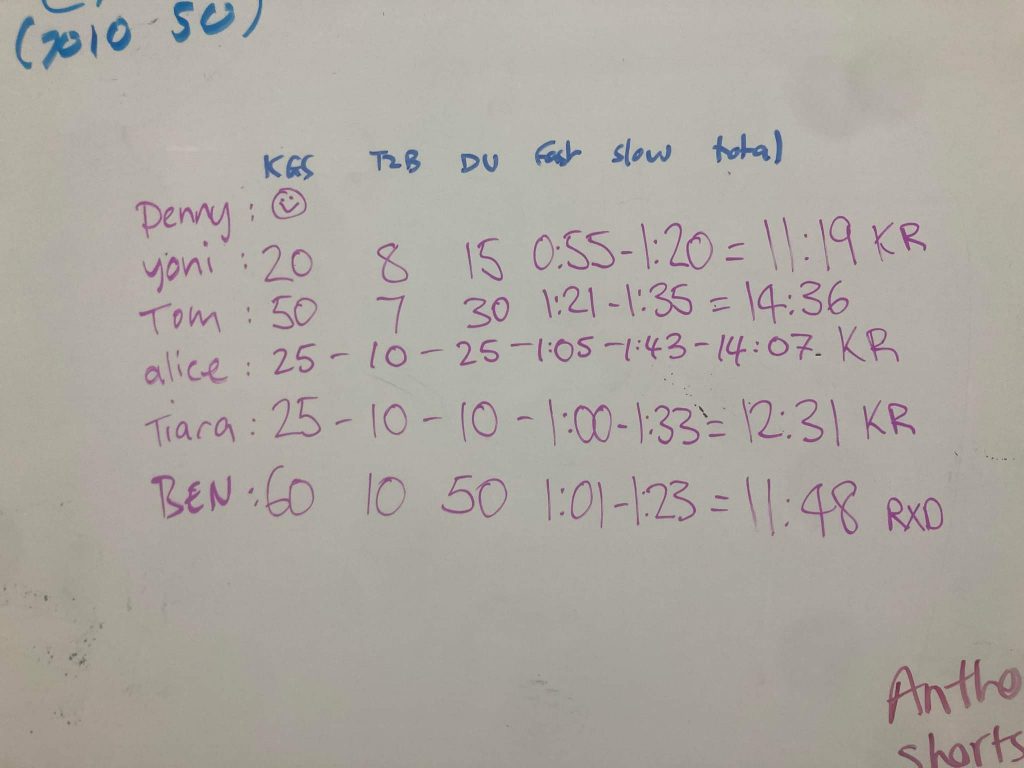 (2010 50)
KGS T2B DU Fast slow total
Denny : ☺
yoni : 20 8 15 0:55-1:20 = 11:19 KR
Tom : 50 7 30 1:21-1:35 = 14:36
alice : 25 - 10 - 25 - 1:05 - 1:43 - 14:07. KR
Tiara : 25 - 10 - 10 - 1:00-1:33 = 12:31 KR
BEN : 60 10 50 1:01-1:23 = 11:48 RXD
Antho
shorts